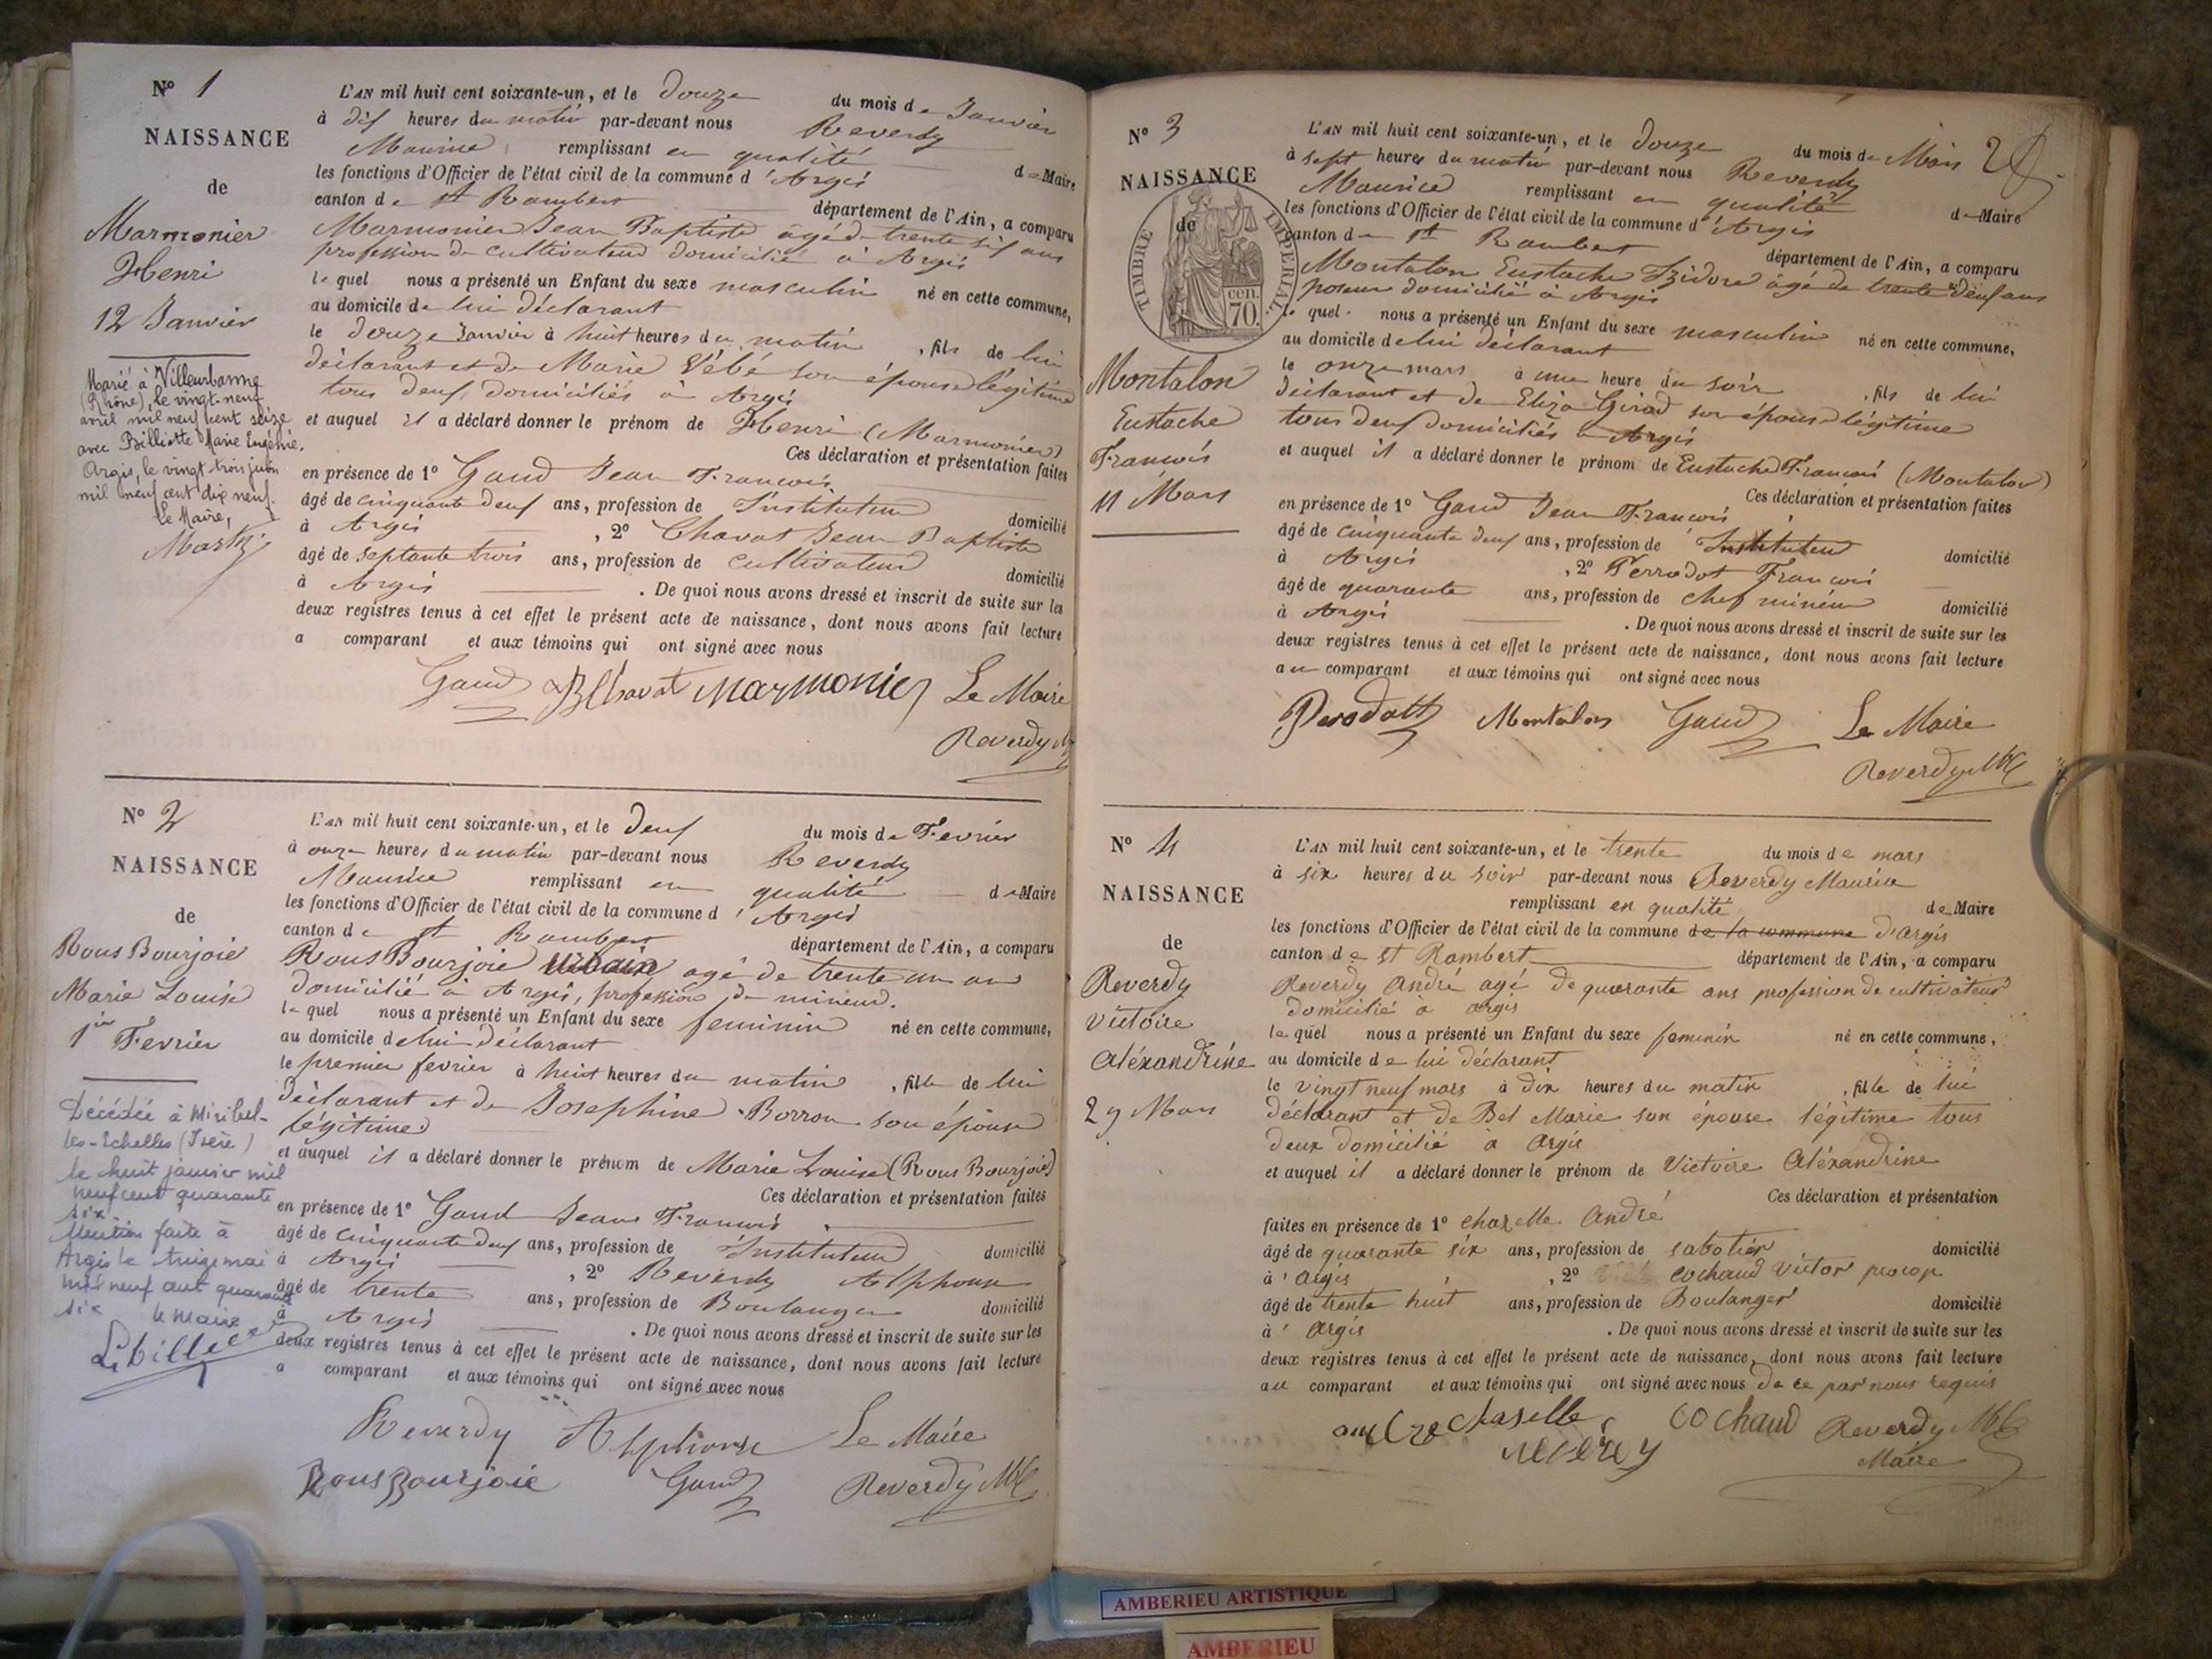 N° 1
NAISSANCE
de
Marmonier
Henri
12 Janvier
Marié à Villeurbanne
(Rhône), le vingt-neuf
avril mil neuf cent seize
avec Billiotte Marie Eugénie.
Argis, le vingt-trois juin
mil neuf cent dix neuf.
Le Maire,
L'AN mil huit cent soixante-un, et le douze du mois de Janvier
à dix heures du matin par-devant nous Reverdy
Maurice remplissant en qualité de Maire
les fonctions d'Officier de l'état civil de la commune d'Argis
canton de St Rambert département de l'Ain, a comparu
Marmonier Jean Baptiste âgé de trente six ans
profession de cultivateur domicilié à Argis
lequel nous a présenté un Enfant du sexe masculin né en cette commune,
au domicile de lui déclarant
le douze Janvier à huit heures du matin, fils de lui
déclarant et de Marie Bébé son épouse légitime
tous deux domiciliés à Argis
et auquel il a déclaré donner le prénom de Henri (Marmonier)
Ces déclaration et présentation faites
en présence de 1° Gaud Jean François
âgé de cinquante deux ans, profession de Instituteur domicilié
à Argis, 2° Chavat Jean Baptiste
âgé de septante trois ans, profession de cultivateur domicilié
à Argis. De quoi nous avons dressé et inscrit de suite sur les
deux registres tenus à cet effet le présent acte de naissance, dont nous avons fait lecture
a comparant et aux témoins qui ont signé avec nous
Gaud JBChavat Marmonier Le Maire
Reverdy
N° 2
NAISSANCE
de
Rous Bourjoie
Marie Louise
1er Fevrier
Décédée à Miribel-
les-Echelles (Isère)
le huit janvier mil
neuf cent quarante
six.
Mention faite à
Argis le treize mai
mil neuf cent quarante
six le Maire
L'AN mil huit cent soixante-un, et le deux du mois de Fevrier
à onze heures du matin par-devant nous Reverdy
Maurice remplissant en qualité de Maire
les fonctions d'Officier de l'état civil de la commune d'Argis
canton de St Rambert département de l'Ain, a comparu
Rous Bourjoie Urbain agé de trente un an
domicilié à Argis, profession de mineur.
lequel nous a présenté un Enfant du sexe feminin né en cette commune,
au domicile de lui déclarant
le premier fevrier à huit heures du matin, fille de lui
déclarant et de Josephine Borron son épouse
légitime
et auquel il a déclaré donner le prénom de Marie Louise (Rous Bourjoie)
Ces déclaration et présentation faites
en présence de 1° Gaud Jean François
âgé de cinquante deux ans, profession de Instituteur domicilié
à Argis, 2° Reverdy Alphonse
âgé de trente ans, profession de Boulanger domicilié
à Argis. De quoi nous avons dressé et inscrit de suite sur les
deux registres tenus à cet effet le présent acte de naissance, dont nous avons fait lecture
a comparant et aux témoins qui ont signé avec nous
Reverdy Alphonse Le Maire
RousBourjoie Gaud Reverdy
N° 3
NAISSANCE
de
TIMBRE IMPERIAL
70 cen.
Montalon
Eustache
François
11 Mars
L'AN mil huit cent soixante-un, et le douze du mois de Mars
à sept heures du matin par-devant nous Reverdy
Maurice remplissant en qualité de Maire
les fonctions d'Officier de l'état civil de la commune d'Argis
canton de St Rambert département de l'Ain, a comparu
Montalon Eustache Isidore âgé de trente deux ans
poseur domicilié à Argis
lequel nous a présenté un Enfant du sexe masculin né en cette commune,
au domicile de lui déclarant
le onze mars à une heure du soir, fils de lui
déclarant et de Eliza Girod son épouse légitime
tous deux domiciliés à Argis
et auquel il a déclaré donner le prénom de Eustache François (Montalon)
Ces déclaration et présentation faites
en présence de 1° Gaud Jean François
âgé de cinquante deux ans, profession de Instituteur domicilié
à Argis, 2° Perrodot François
âgé de quarante ans, profession de chef mineur domicilié
à Argis. De quoi nous avons dressé et inscrit de suite sur les
deux registres tenus à cet effet le présent acte de naissance, dont nous avons fait lecture
au comparant et aux témoins qui ont signé avec nous
Montalon Gaud Le Maire
Reverdy
N° 4
NAISSANCE
de
Reverdy
Victoire
Aléxandrine
29 Mars
L'AN mil huit cent soixante-un, et le trente du mois de mars
à six heures du soir par-devant nous Reverdy Maurice
remplissant en qualité de Maire
les fonctions d'Officier de l'état civil de la commune de la commune d'Argis
canton de St Rambert département de l'Ain, a comparu
Reverdy André agé de quarante ans profession de cultivateur
domicilié à argis
lequel nous a présenté un Enfant du sexe feminin né en cette commune,
au domicile de lui déclarant
le vingt neuf mars à dix heures du matin, fille de lui
déclarant et de Bel Marie son épouse légitime tous
deux domicilié à Argis
et auquel il a déclaré donner le prénom de Victoire Aléxandrine
Ces déclaration et présentation
faites en présence de 1° chazelle André
âgé de quarante six ans, profession de sabotier domicilié
à argis, 2° cochaud Victor procop
âgé de trente huit ans, profession de Boulanger domicilié
à argis. De quoi nous avons dressé et inscrit de suite sur les
deux registres tenus à cet effet le présent acte de naissance, dont nous avons fait lecture
au comparant et aux témoins qui ont signé avec nous de ce par nous requis
chaselle cochaud Reverdy
Maire
AMBERIEU ARTISTIQUE
AMBERIEU